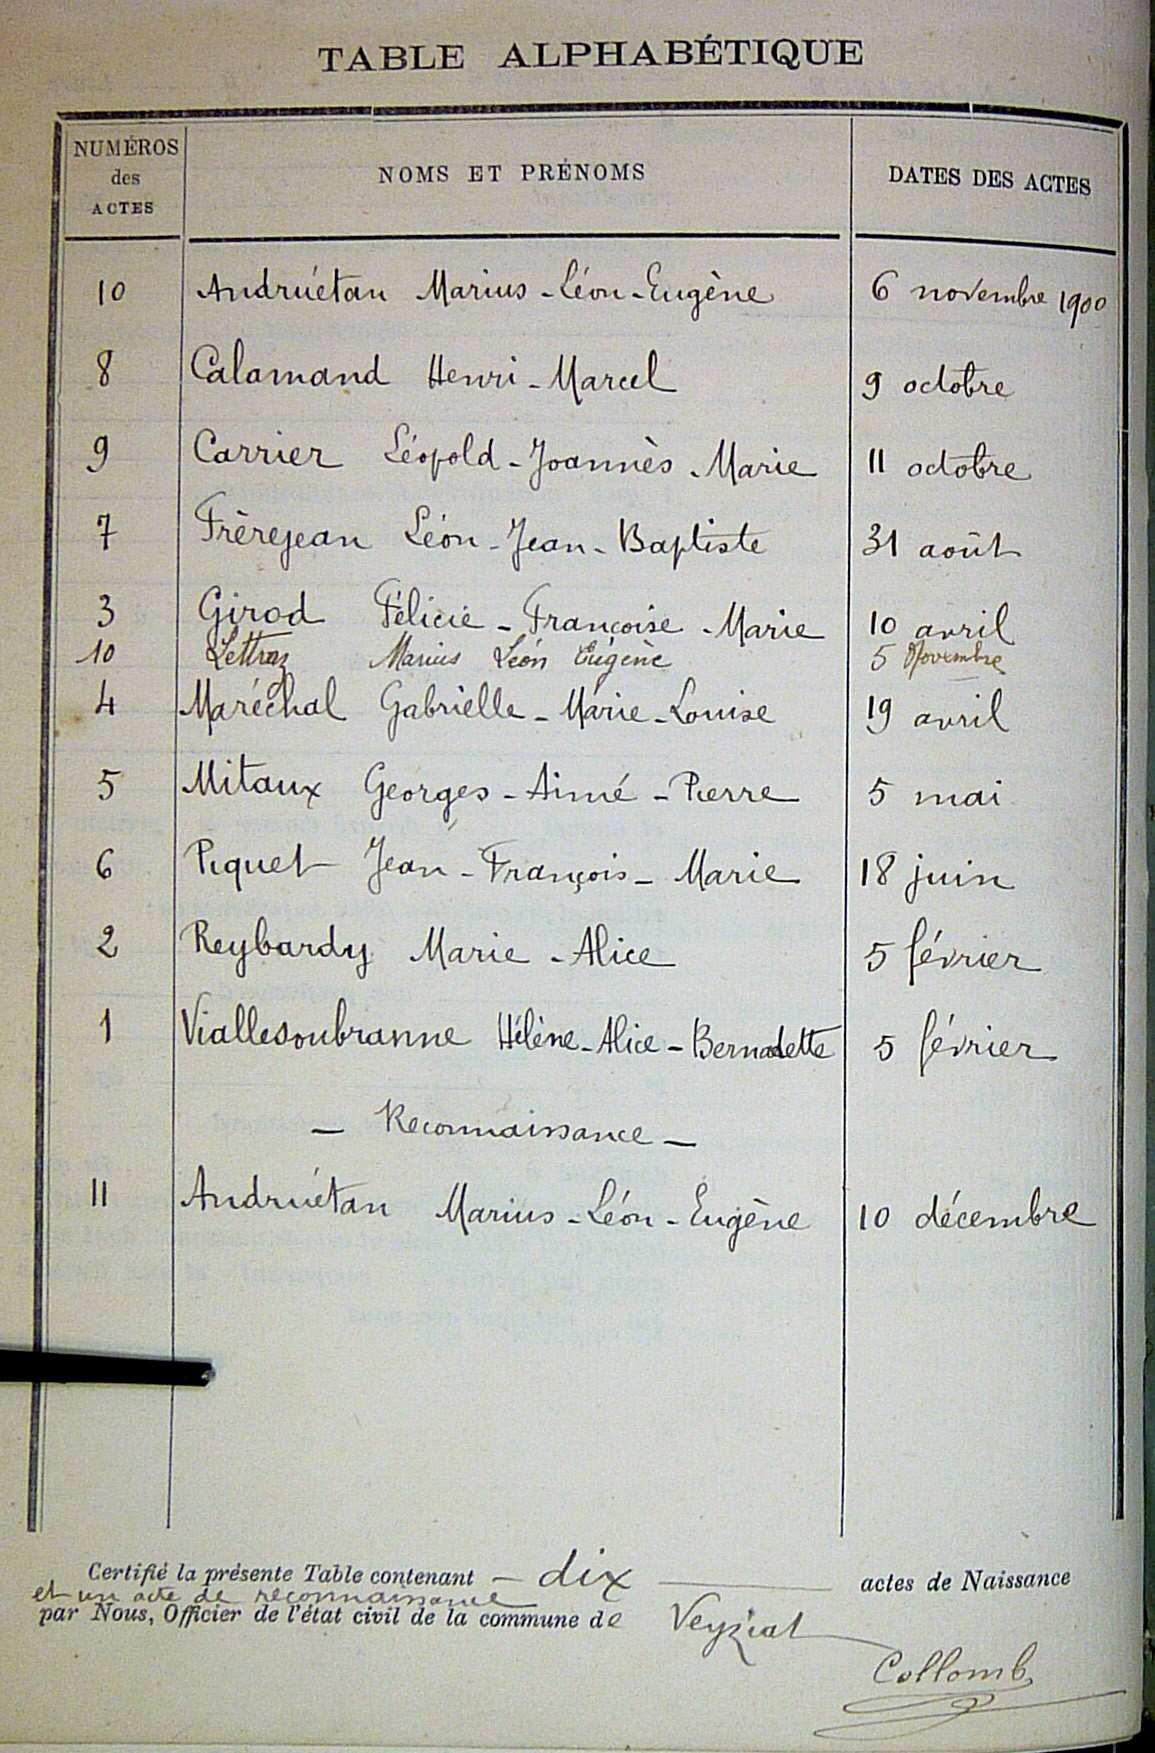 TABLE ALPHABÉTIQUE
NUMÉROS des ACTES NOMS ET PRÉNOMS DATES DES ACTES
10 Andruétan Marius - Léon - Eugène 6 novembre 1900
8 Calamand Henri - Marcel 9 octobre
9 Carrier Léopold - Joannès - Marie 11 octobre
7 Frèrejean Léon - Jean - Baptiste 31 août
3 Girod Félicie - Françoise - Marie 10 avril
10 Lettraz Marius Léon Eugène 5 Novembre
4 Maréchal Gabrielle - Marie - Louise 19 avril
5 Mitaux Georges - Aimé - Pierre 5 mai
6 Piquet Jean - François - Marie 18 juin
2 Reybardy Marie - Alice 5 février
1 Viallesoubranne Hélène - Alice - Bernadette 5 février
- Reconnaissance -
11 Andruétan Marius - Léon - Eugène 10 décembre
Certifié la présente Table contenant - dix - actes de Naissance
et un acte de reconnaissance
par Nous, Officier de l'état civil de la commune de Veyziat
Collomb